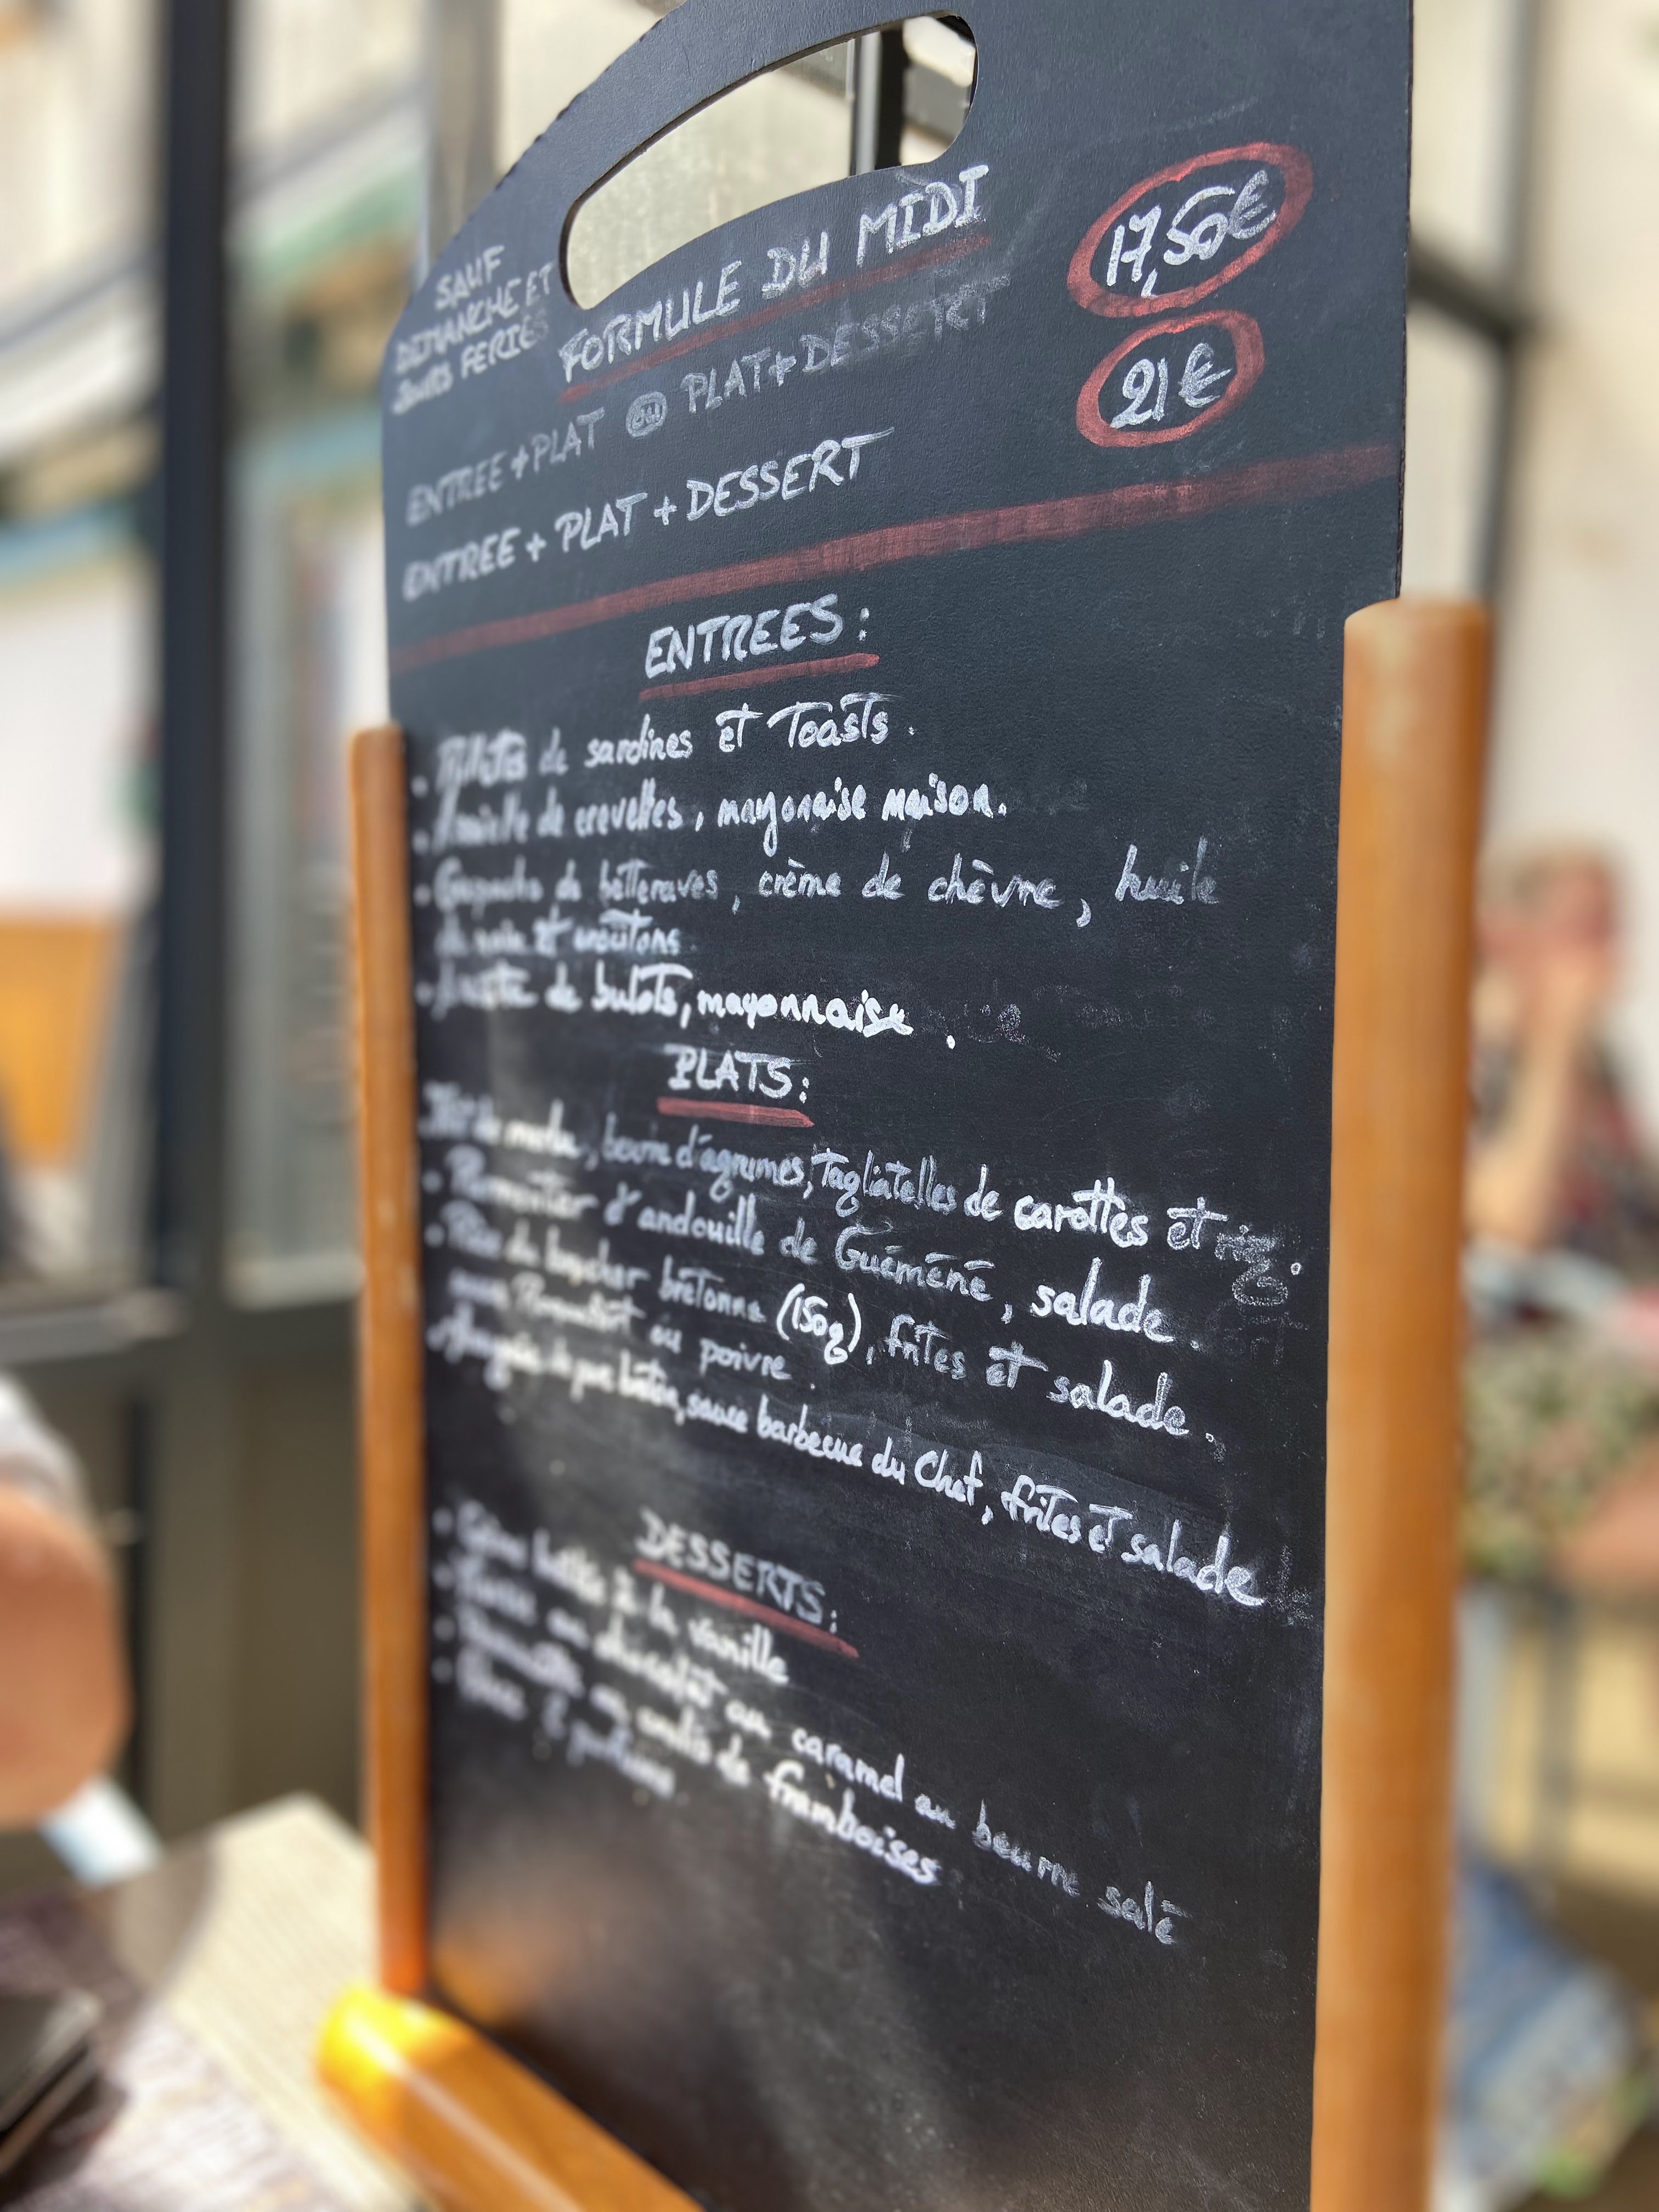 SAUF
DIMANCHE ET
JOURS FERIÉS
FORMULE DU MIDI
17,50€
ENTREE + PLAT OU PLAT + DESSERT
21€
ENTREE + PLAT + DESSERT
ENTREES :
de sardines et Toasts.
- Assiette de crevettes, mayonaise maison.
- Gaspacho de betteraves, crème de chèvre, huile
de noix et croûtons
- Assiette de bulots, mayonnaise.
PLATS :
beurre d'agrumes, Tagliatelles de carottes et riz.
- Parmentier d'andouille de Guéméné, salade.
- Pièce du boucher bretonne (150g), frites et salade.
sauce ou poivre.
de porc breton, sauce barbecue du Chef, frites et salade
DESSERTS :
- Crème brûlée à la vanille
- au chocolat au caramel au beurre salé
- coulis de framboises
- 2 parfums